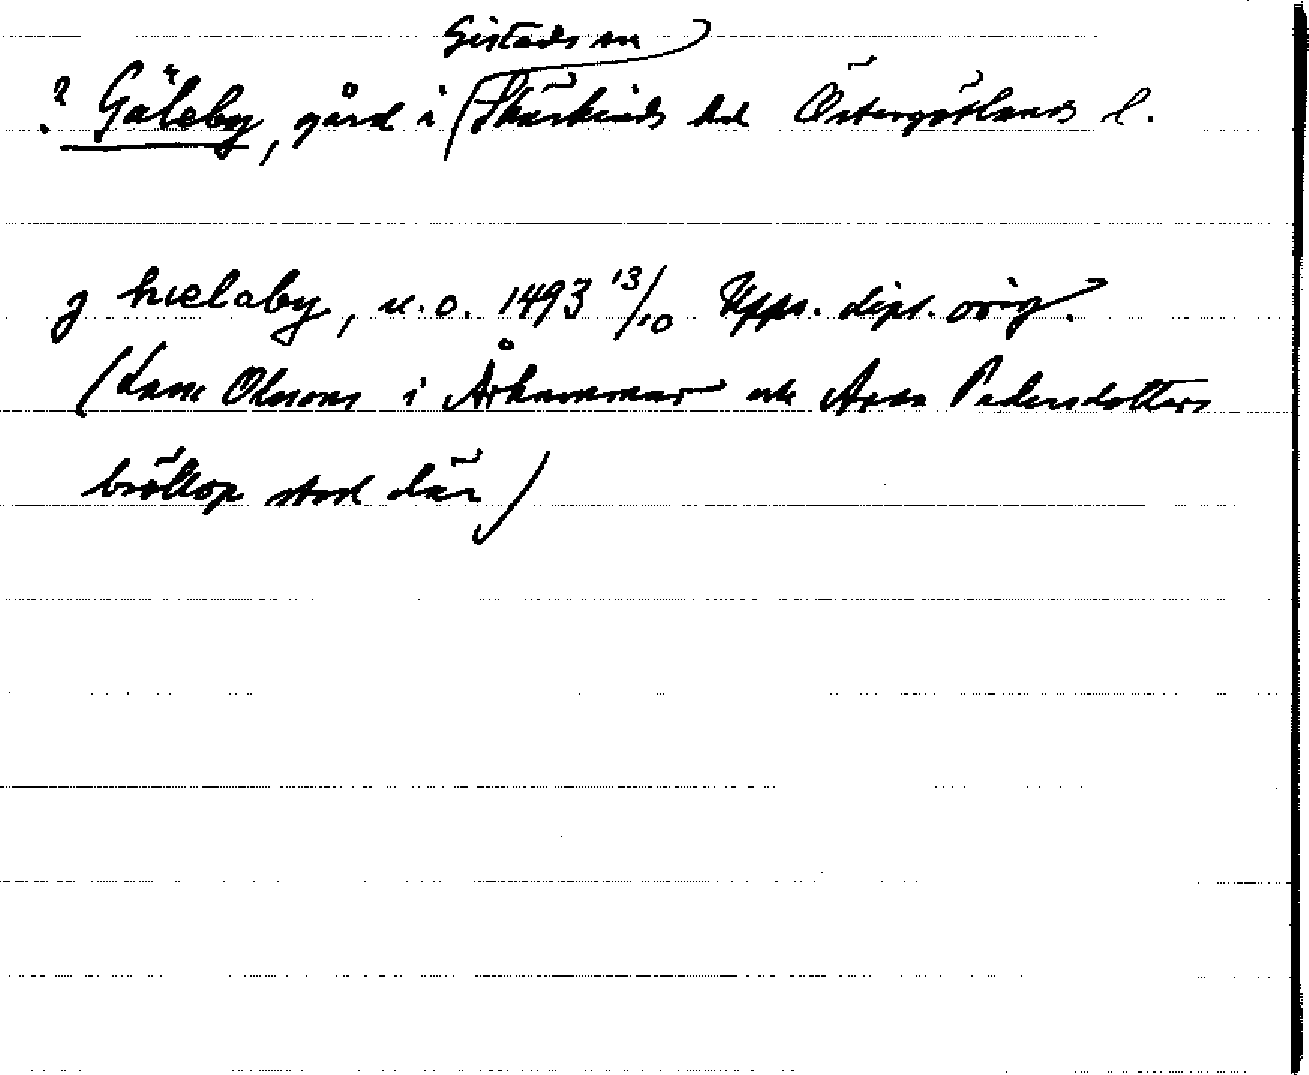 Gistads sn
? Gäleby, gård i Skärkinds hd Östergötlands l.
j hwelaby, u.o. 1493 13/10 Upps. dipl. orig.
(Lasse Olssons i Århammar och Anna Pedersdotters
bröllop stod där)